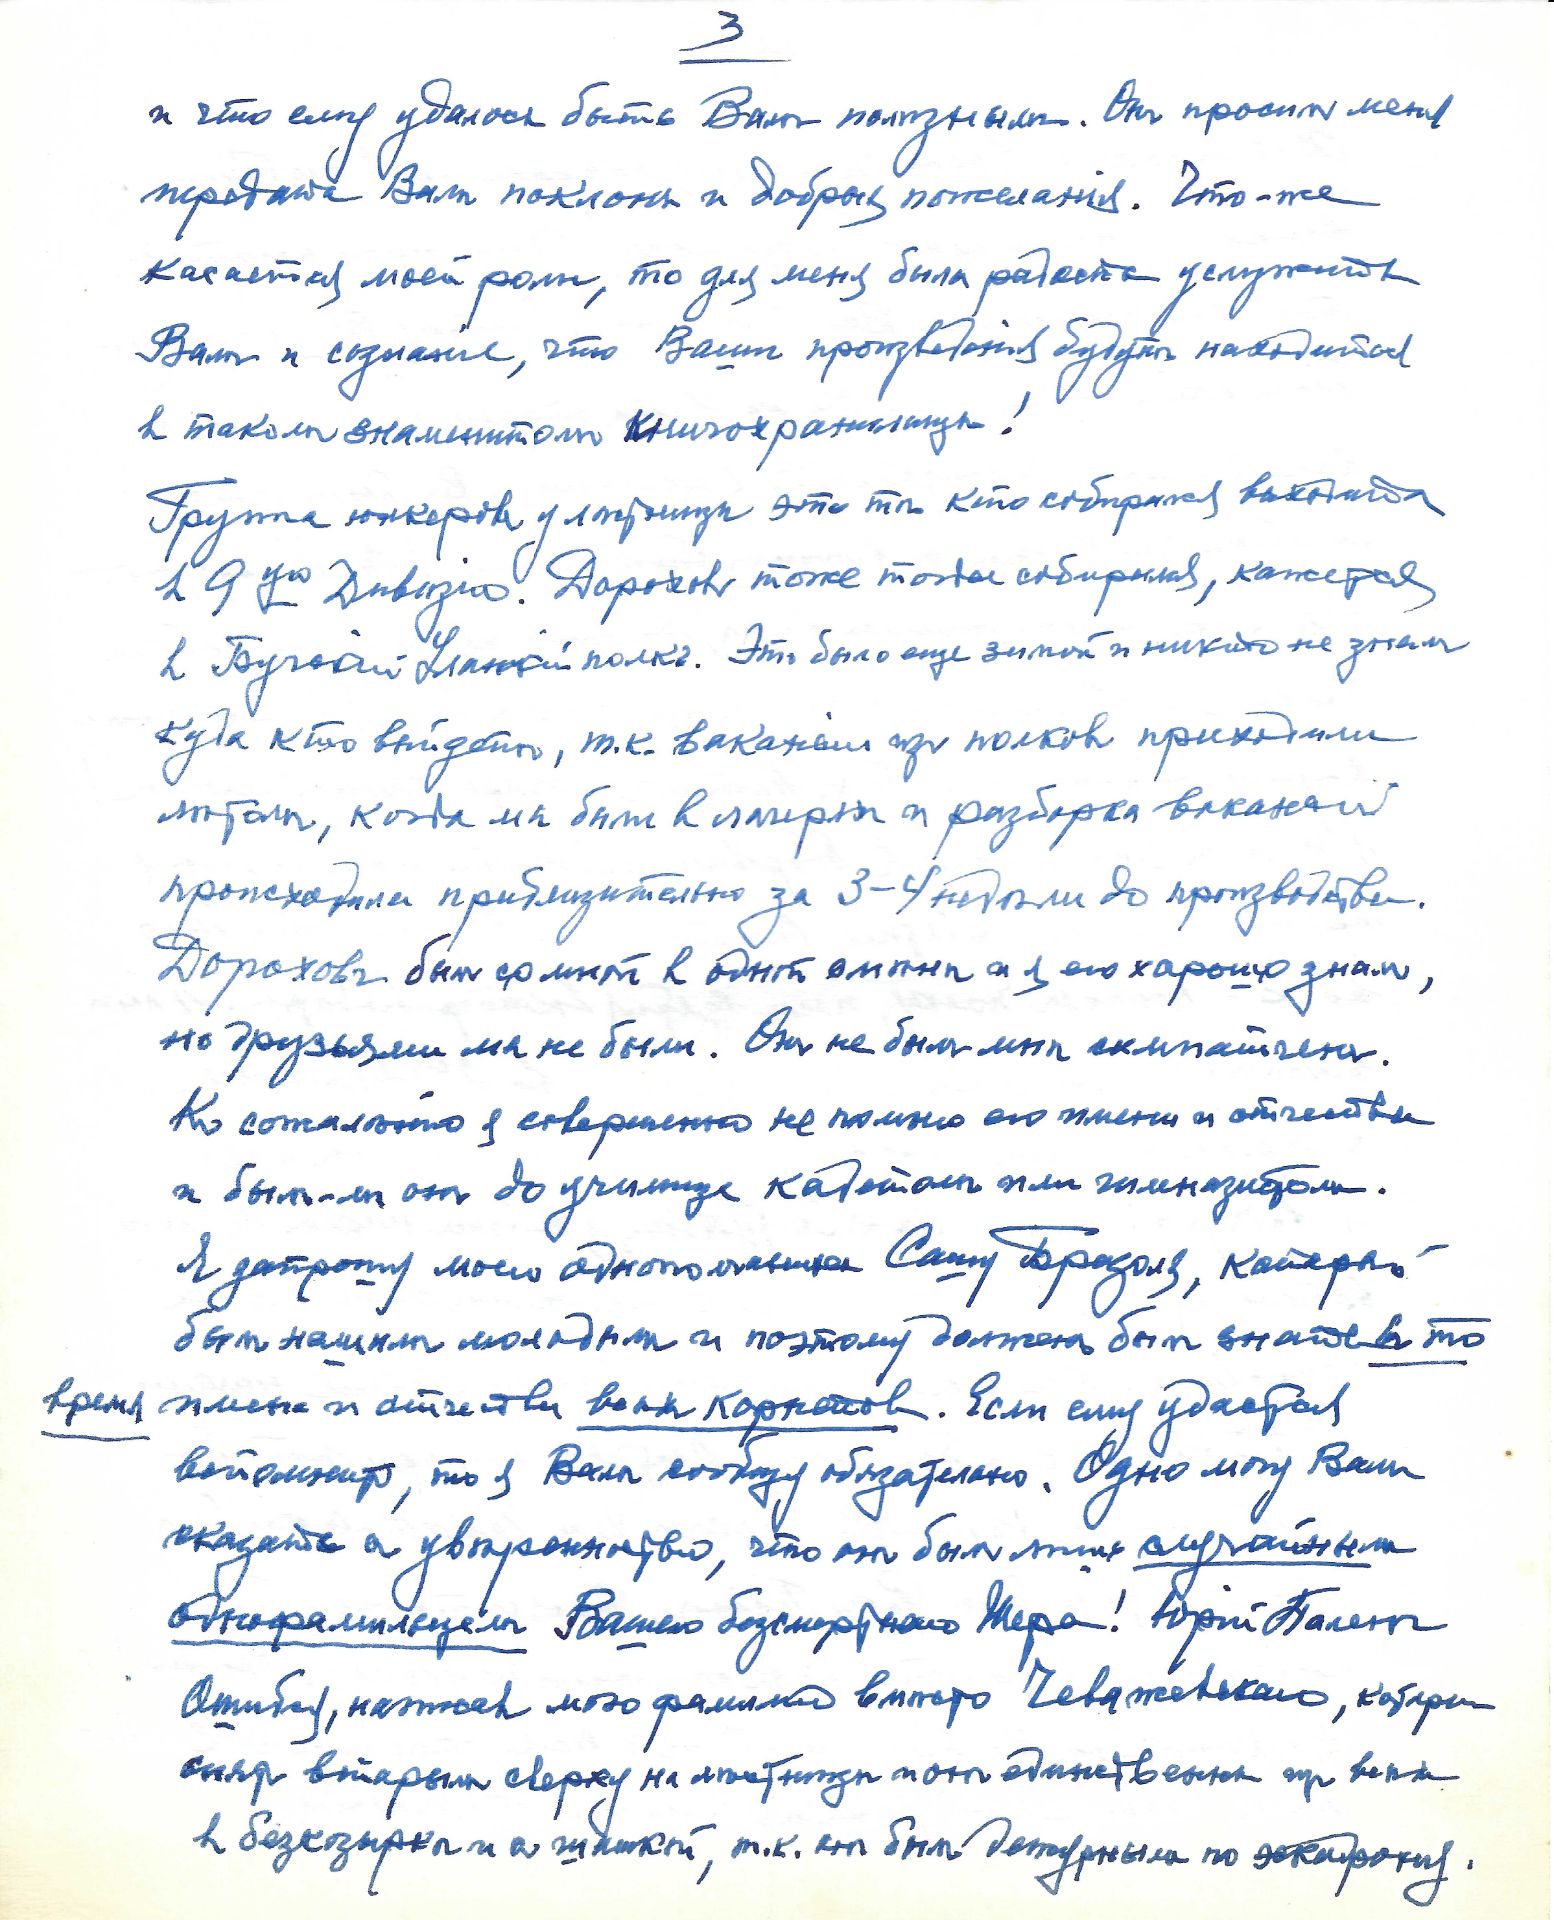 3
и что ему удалось быть Вамъ полезнымъ. Онъ просилъ меня
передать Вамъ поклонъ и добрыя пожеланія. Что-же
касается моей роли, то для меня была радость услужить
Вамъ и сознаніе, что Ваши произведенія будутъ находиться
въ такомъ знаменитомъ книгохранилищѣ!
Группа юнкеровъ у лѣстницы это тѣ кто собирался выходить
въ 9ую Дивизію. Дороховъ тоже тогда собирался, кажется
въ Бугскій Уланскій полкъ. Это было еще зимой и никто не зналъ
куда кто выйдетъ, т.к. вакансіи изъ полковъ приходили
лѣтомъ, когда мы были въ лагеряхъ и разборка вакансій
происходила приблизительно за 3-4 недѣли до производства.
Дороховъ былъ со мной въ одной смѣнѣ и я его хорошо зналъ,
но друзьями мы не были. Онъ не былъ мнѣ симпатиченъ.
Къ сожалѣнію я совершенно не помню его имени и отчества
и былъ-ли онъ до училища кадетомъ или гимназистомъ.
Я запрошу моего однополчанина Сашу Бразоля, который
былъ нашимъ молодымъ и поэтому долженъ былъ знать въ то
время имена и отчества всѣхъ корнетовъ. Если ему удастся
вспомнить, то я Вамъ сообщу обязательно. Одно могу Вамъ
сказать съ увѣренностью, что онъ былъ лишь случайнымъ
однофамильцемъ Вашего безсмертнаго Жера! Юрій Паленъ
Ошибся, назвавъ мою фамилію вмѣсто Чеважевскаго, который
снятъ вторымъ сверху на лѣстницѣ и онъ единственный изъ всѣхъ
въ безкозыркѣ и съ шашкой, т.к. онъ былъ дежурнымъ по эскадрону.